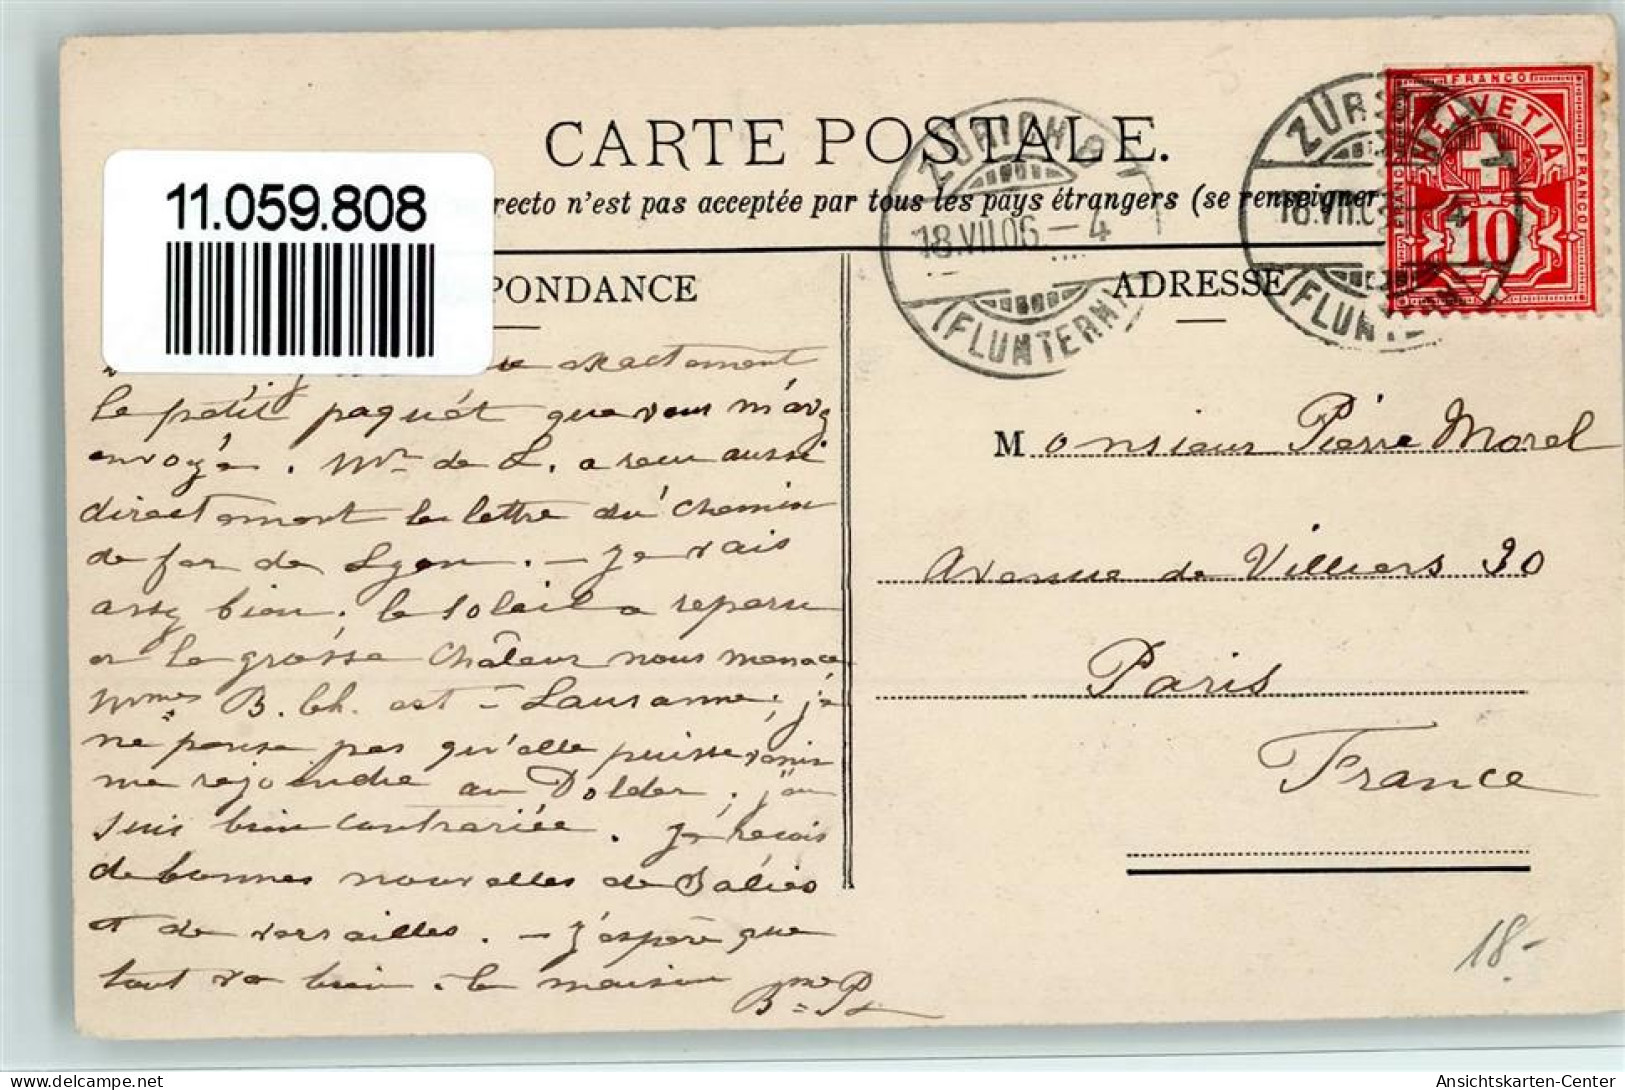 CARTE POSTALE.
11.059.808
recto n'est pas acceptée par tous les pays étrangers (se renseigner
PONDANCE
ADRESSE
ZÜRICH 8
18.VII.06 – 4
(FLUNTERN)
ZÜR
18.VII.0 4
(FLUNTE
FRANCO
HELVETIA
FRANCO
FRANCO
10
exactement
le petit paquet que vous m'avez
envoyé. Mr de L. a reçu aussi
directement la lettre du chemin
de fer de Lyon. – Je vais
assez bien. le soleil a reparu
et la grosse chaleur nous menace
B. Ch. est à Lausanne; je
ne pense pas qu'elle puisse venir
me rejoindre au Dolder; j'en
suis bien contrariée. Je reçois
de bonnes nouvelles de Salies
et de Versailles. – J'espère que
tout va bien à la maison
Monsieur Pierre Morel
Avenue de Villiers 30
Paris
France
18.-
delcampe.net
Ansichtskarten-Center